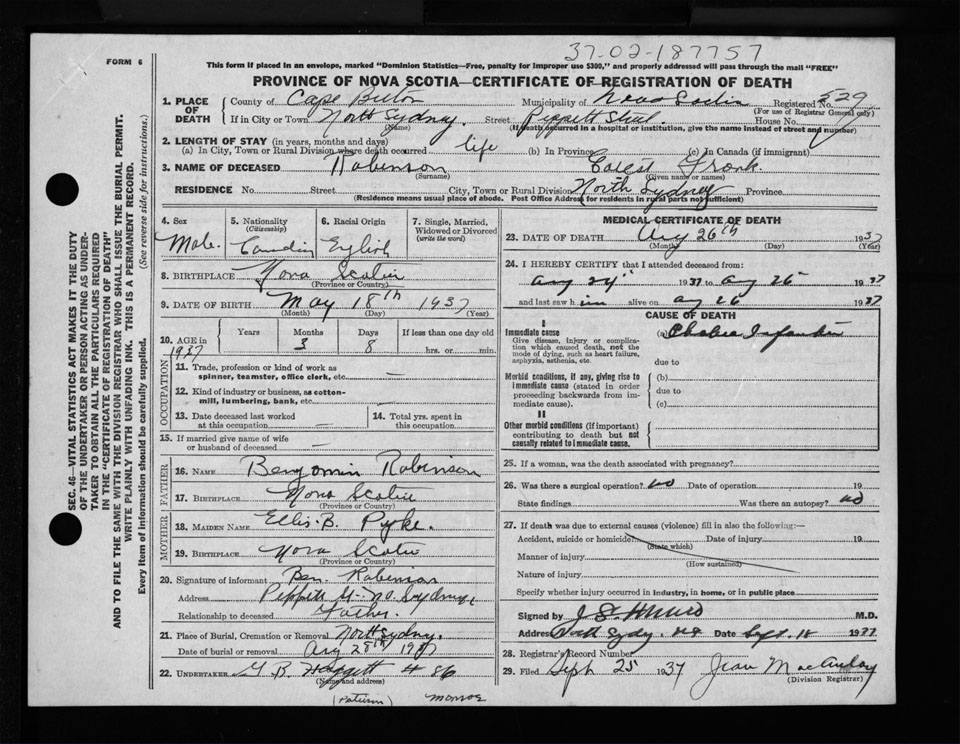 37-02-187757
FORM 6
This form if placed in an envelope, marked "Dominion Statistics—Free, penalty for improper use $300," and properly addressed will pass through the mail "FREE"
PROVINCE OF NOVA SCOTIA—CERTIFICATE OF REGISTRATION OF DEATH
1. PLACE OF DEATH
County of Cape Breton Municipality of Nova Scotia Registered No. 529
(For use of Registrar General only)
If in City or Town North Sydney. Street Peppett Street. House No.
(Name) (If death occurred in a hospital or institution, give the name instead of street and number)
2. LENGTH OF STAY (in years, months and days)
(a) In City, Town or Rural Division where death occurred life (b) In Province (c) In Canada (if immigrant)
3. NAME OF DECEASED Robinson Frank.
(Surname) (Given name or names)
RESIDENCE No. Street City, Town or Rural Division North Sydney Province
(Residence means usual place of abode. Post Office Address for residents in rural parts not sufficient)
4. Sex Male.
5. Nationality (Citizenship)
6. Racial Origin English
7. Single, Married, Widowed or Divorced (write the word)
8. BIRTHPLACE Nova Scotia
(Province or Country)
9. DATE OF BIRTH May 18th 1937
(Month) (Day) (Year)
10. AGE in 1937 Years Months 3 Days 8 If less than one day old hrs. or min.
OCCUPATION
11. Trade, profession or kind of work as spinner, teamster, office clerk, etc.
12. Kind of industry or business, as cotton-mill, lumbering, bank, etc.
13. Date deceased last worked at this occupation
14. Total yrs. spent in this occupation
15. If married give name of wife or husband of deceased
FATHER
16. NAME Benjamin Robinson
17. BIRTHPLACE Nova Scotia
(Province or Country)
MOTHER
18. MAIDEN NAME Ellis. B. Pyke.
19. BIRTHPLACE Nova Scotia
(Province or Country)
20. Signature of informant Ben. Robinson
Address Peppett St. No. Sydney
Relationship to deceased Father.
21. Place of Burial, Cremation or Removal North Sydney.
Date of burial or removal Aug 28th 1937
22. UNDERTAKER G. B. 486
(Name and address)
MEDICAL CERTIFICATE OF DEATH
23. DATE OF DEATH Aug 26th 1937
(Month) (Day) (Year)
24. I HEREBY CERTIFY that I attended deceased from:
Aug 24 1937 to Aug 26 1937
and last saw him alive on Aug 26 1937
CAUSE OF DEATH
I
Immediate cause
Give disease, injury or complication which caused death, not the mode of dying, such as heart failure, asphyxia, asthenia, etc.
(a) Cholera Infantum
due to
Morbid conditions, if any, giving rise to immediate cause (stated in order proceeding backwards from immediate cause).
(b)
due to
(c)
II
Other morbid conditions (if important) contributing to death but not causally related to immediate cause.
25. If a woman, was the death associated with pregnancy?
26. Was there a surgical operation? No Date of operation 19
State findings Was there an autopsy? No
27. If death was due to external causes (violence) fill in also the following:—
Accident, suicide or homicide Date of injury 19
(State which)
Manner of injury
(How sustained)
Nature of injury
Specify whether injury occurred in industry, in home, or in public place
Signed by M.D.
Address Date Sept. 18 1937
28. Registrar's Record Number
29. Filed Sept 25 1937 Jean MacAulay
(Division Registrar)
Monroe
SEC. 46—VITAL STATISTICS ACT MAKES IT THE DUTY
OF THE UNDERTAKER OR PERSON ACTING AS UNDER-
TAKER TO OBTAIN ALL THE PARTICULARS REQUIRED
IN THE "CERTIFICATE OF REGISTRATION OF DEATH"
AND TO FILE THE SAME WITH THE DIVISION REGISTRAR WHO SHALL ISSUE THE BURIAL PERMIT.
WRITE PLAINLY WITH UNFADING INK. THIS IS A PERMANENT RECORD.
Every item of information should be carefully supplied. (See reverse side for instructions.)